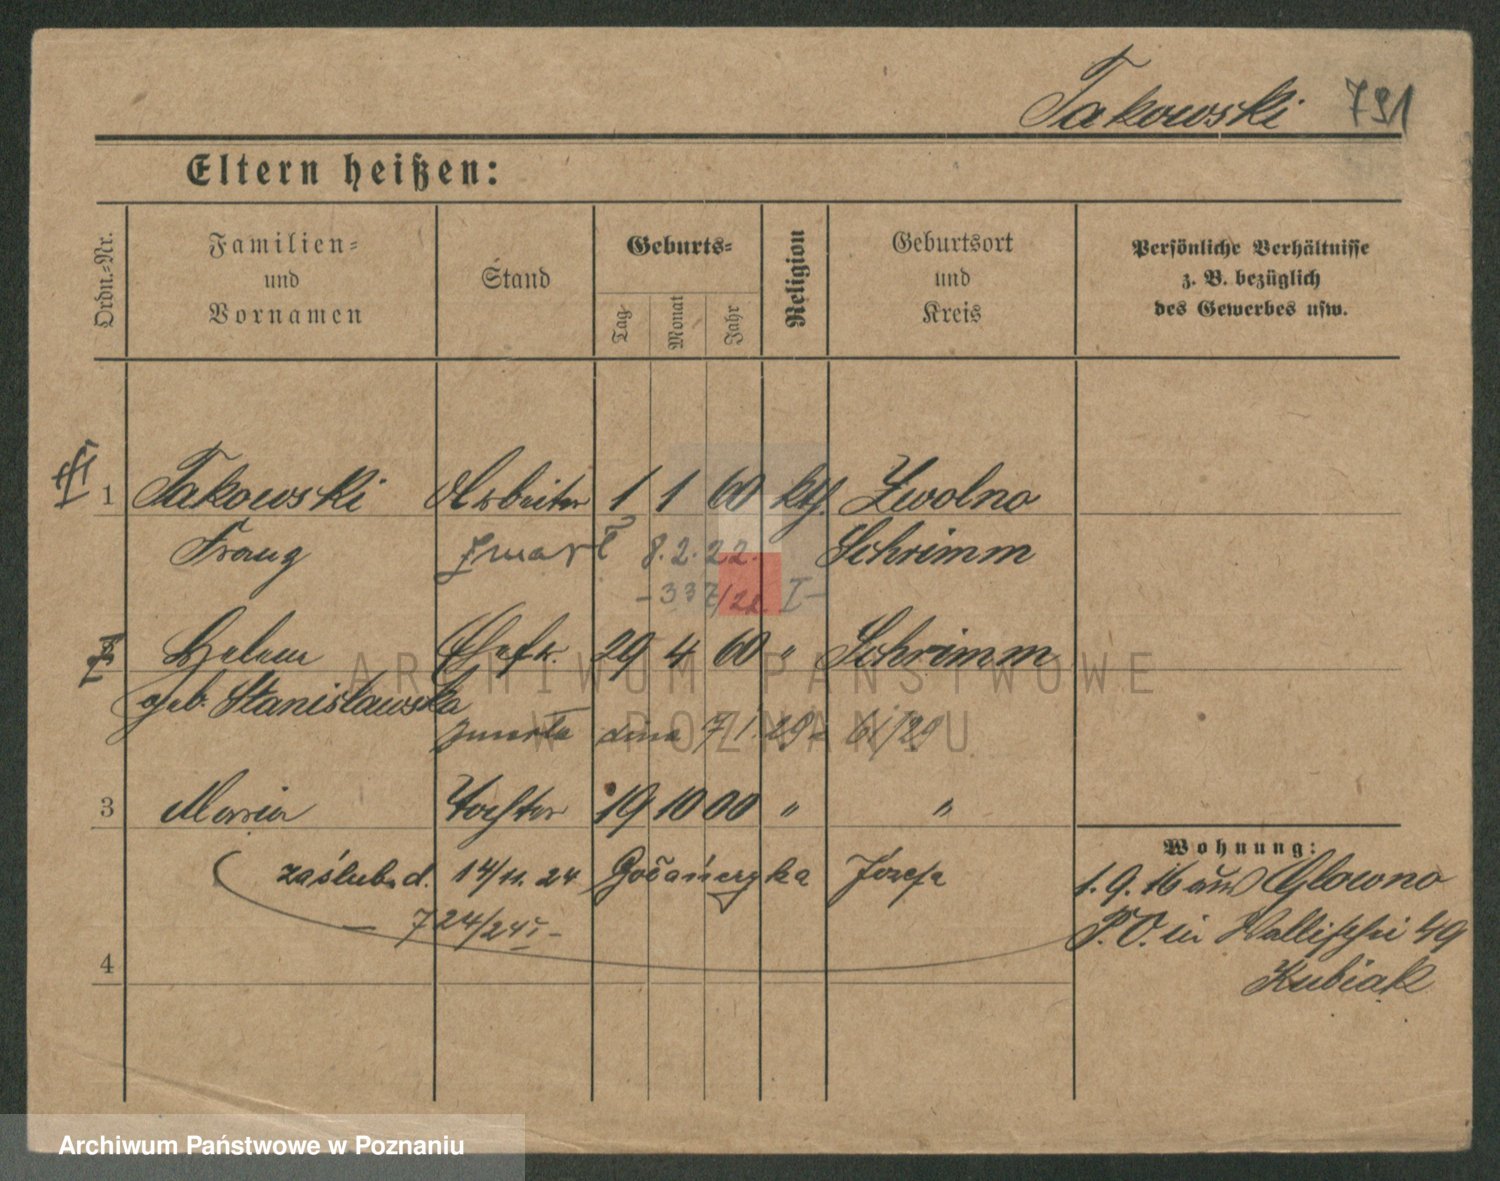 Takowski 791
Eltern heißen:
Ordn.-Nr. Familien- und Vornamen Stand Geburts- Tag Monat Jahr Religion Geburtsort und Kreis Persönliche Verhältnisse z. B. bezüglich des Gewerbes usw.
1 Takowski Arbeiter 1 1 60 kth. Zwolno
Franz zmarł 8.2.22. Schrimm
-337/22 I-
Helene Ehefr. 29 4 60 " Schrimm
geb. Stanisławska
zmarła dnia 7/1. 29 61/29
3 Maria Tochter 19 10 00 " "
Wohnung:
zaślub. d. 14/11. 24 Józefa
1.9.16 aus Glowno
- 724/24 I -
P.O. in Wallischei 49
4
Kubiak
ARCHIWUM PAŃSTWOWE
W POZNANIU
Archiwum Państwowe w Poznaniu